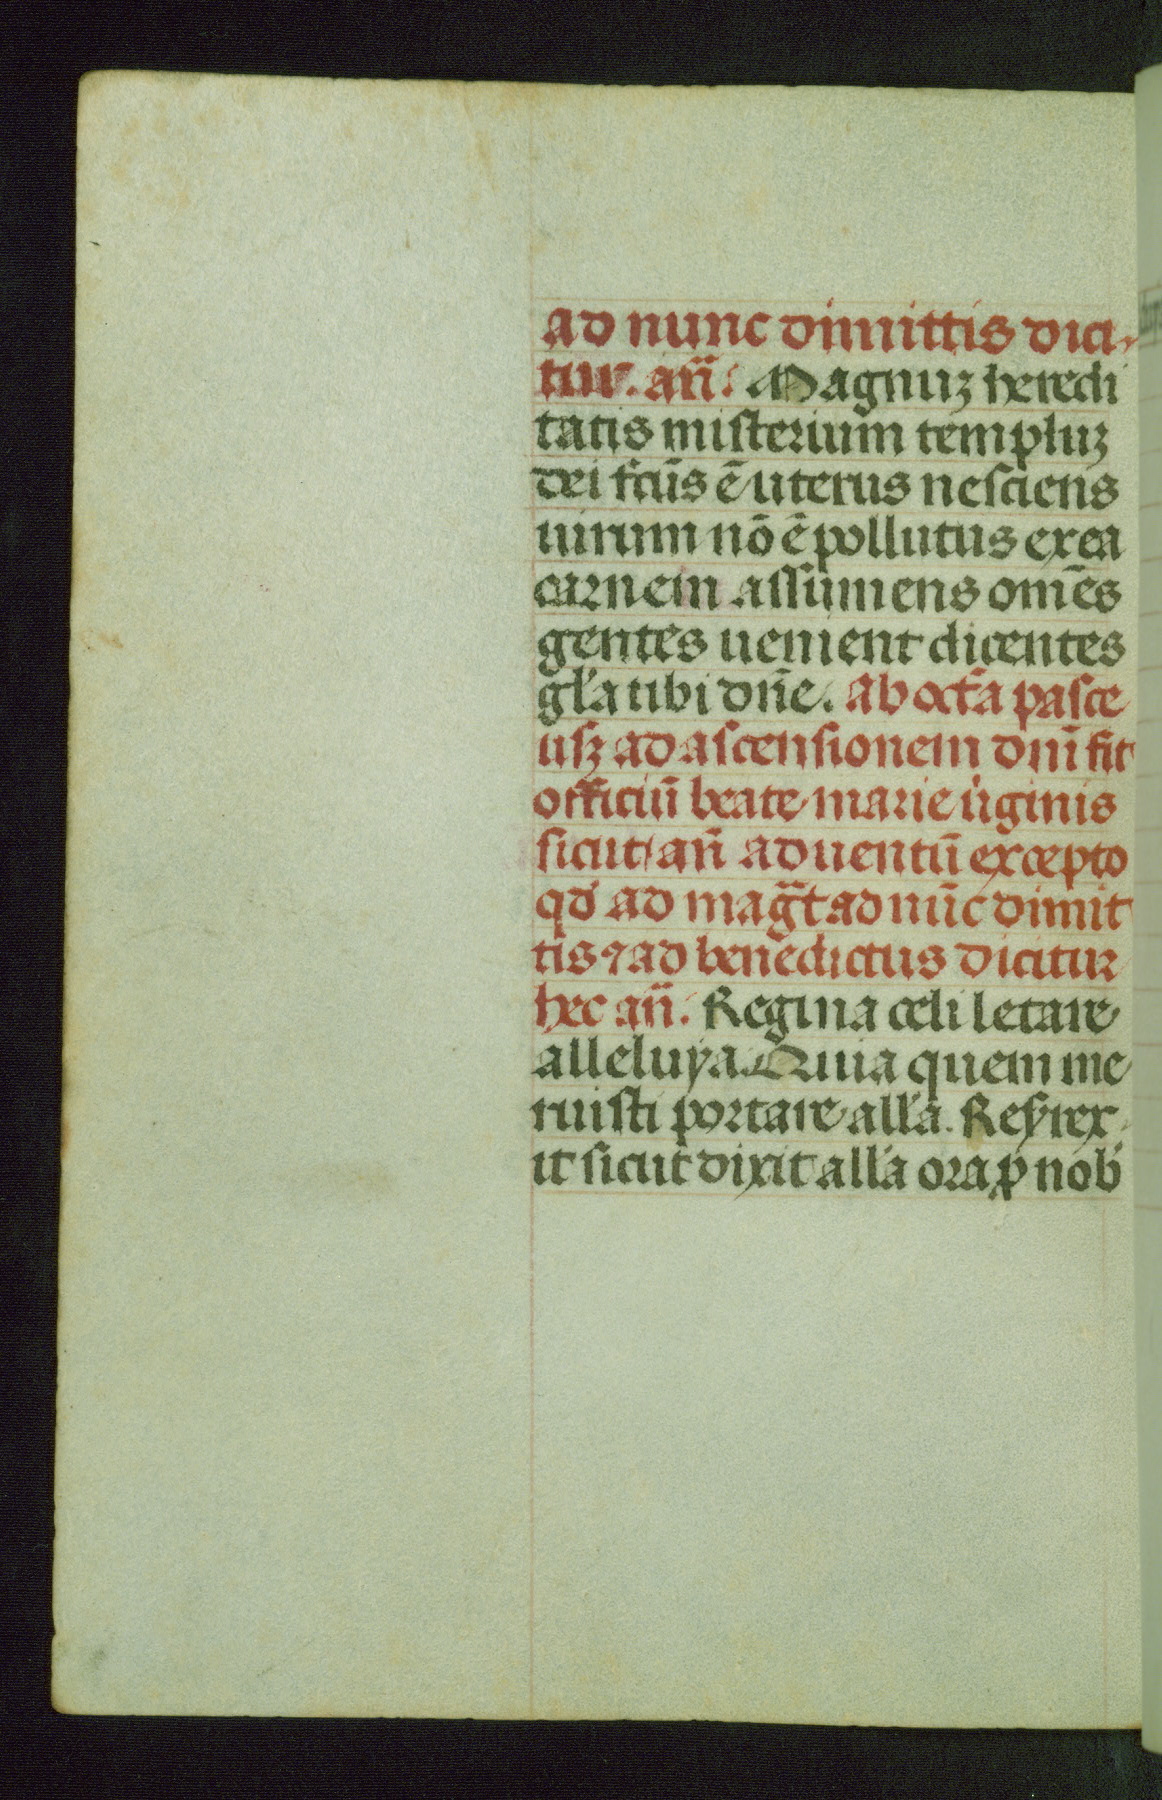 ad nunc dimittis dici-
tur. añ. Magnuꝫ heredi
tatis misterium templuꝫ
dei fcũs ẽ uterus nesciens
uirum nõ ẽ pollutus ex ea
carnem assumens om̃es
gentes uenient dicentes
gl'a tibi dñe. Ab octa pasce
usꝫ ad ascensionem dñi fit
officiũ beate marie uiginis
sicut añ aduentũ excepto
qd' ad mag̃t ad nũc dimit
tis ⁊ ad benedictus dicitur
hec añ. Regina celi letare
alleluya. Quia quem me
ruisti portare all'a. Resurex-
it sicut dixit all'a ora ꝓ nob'